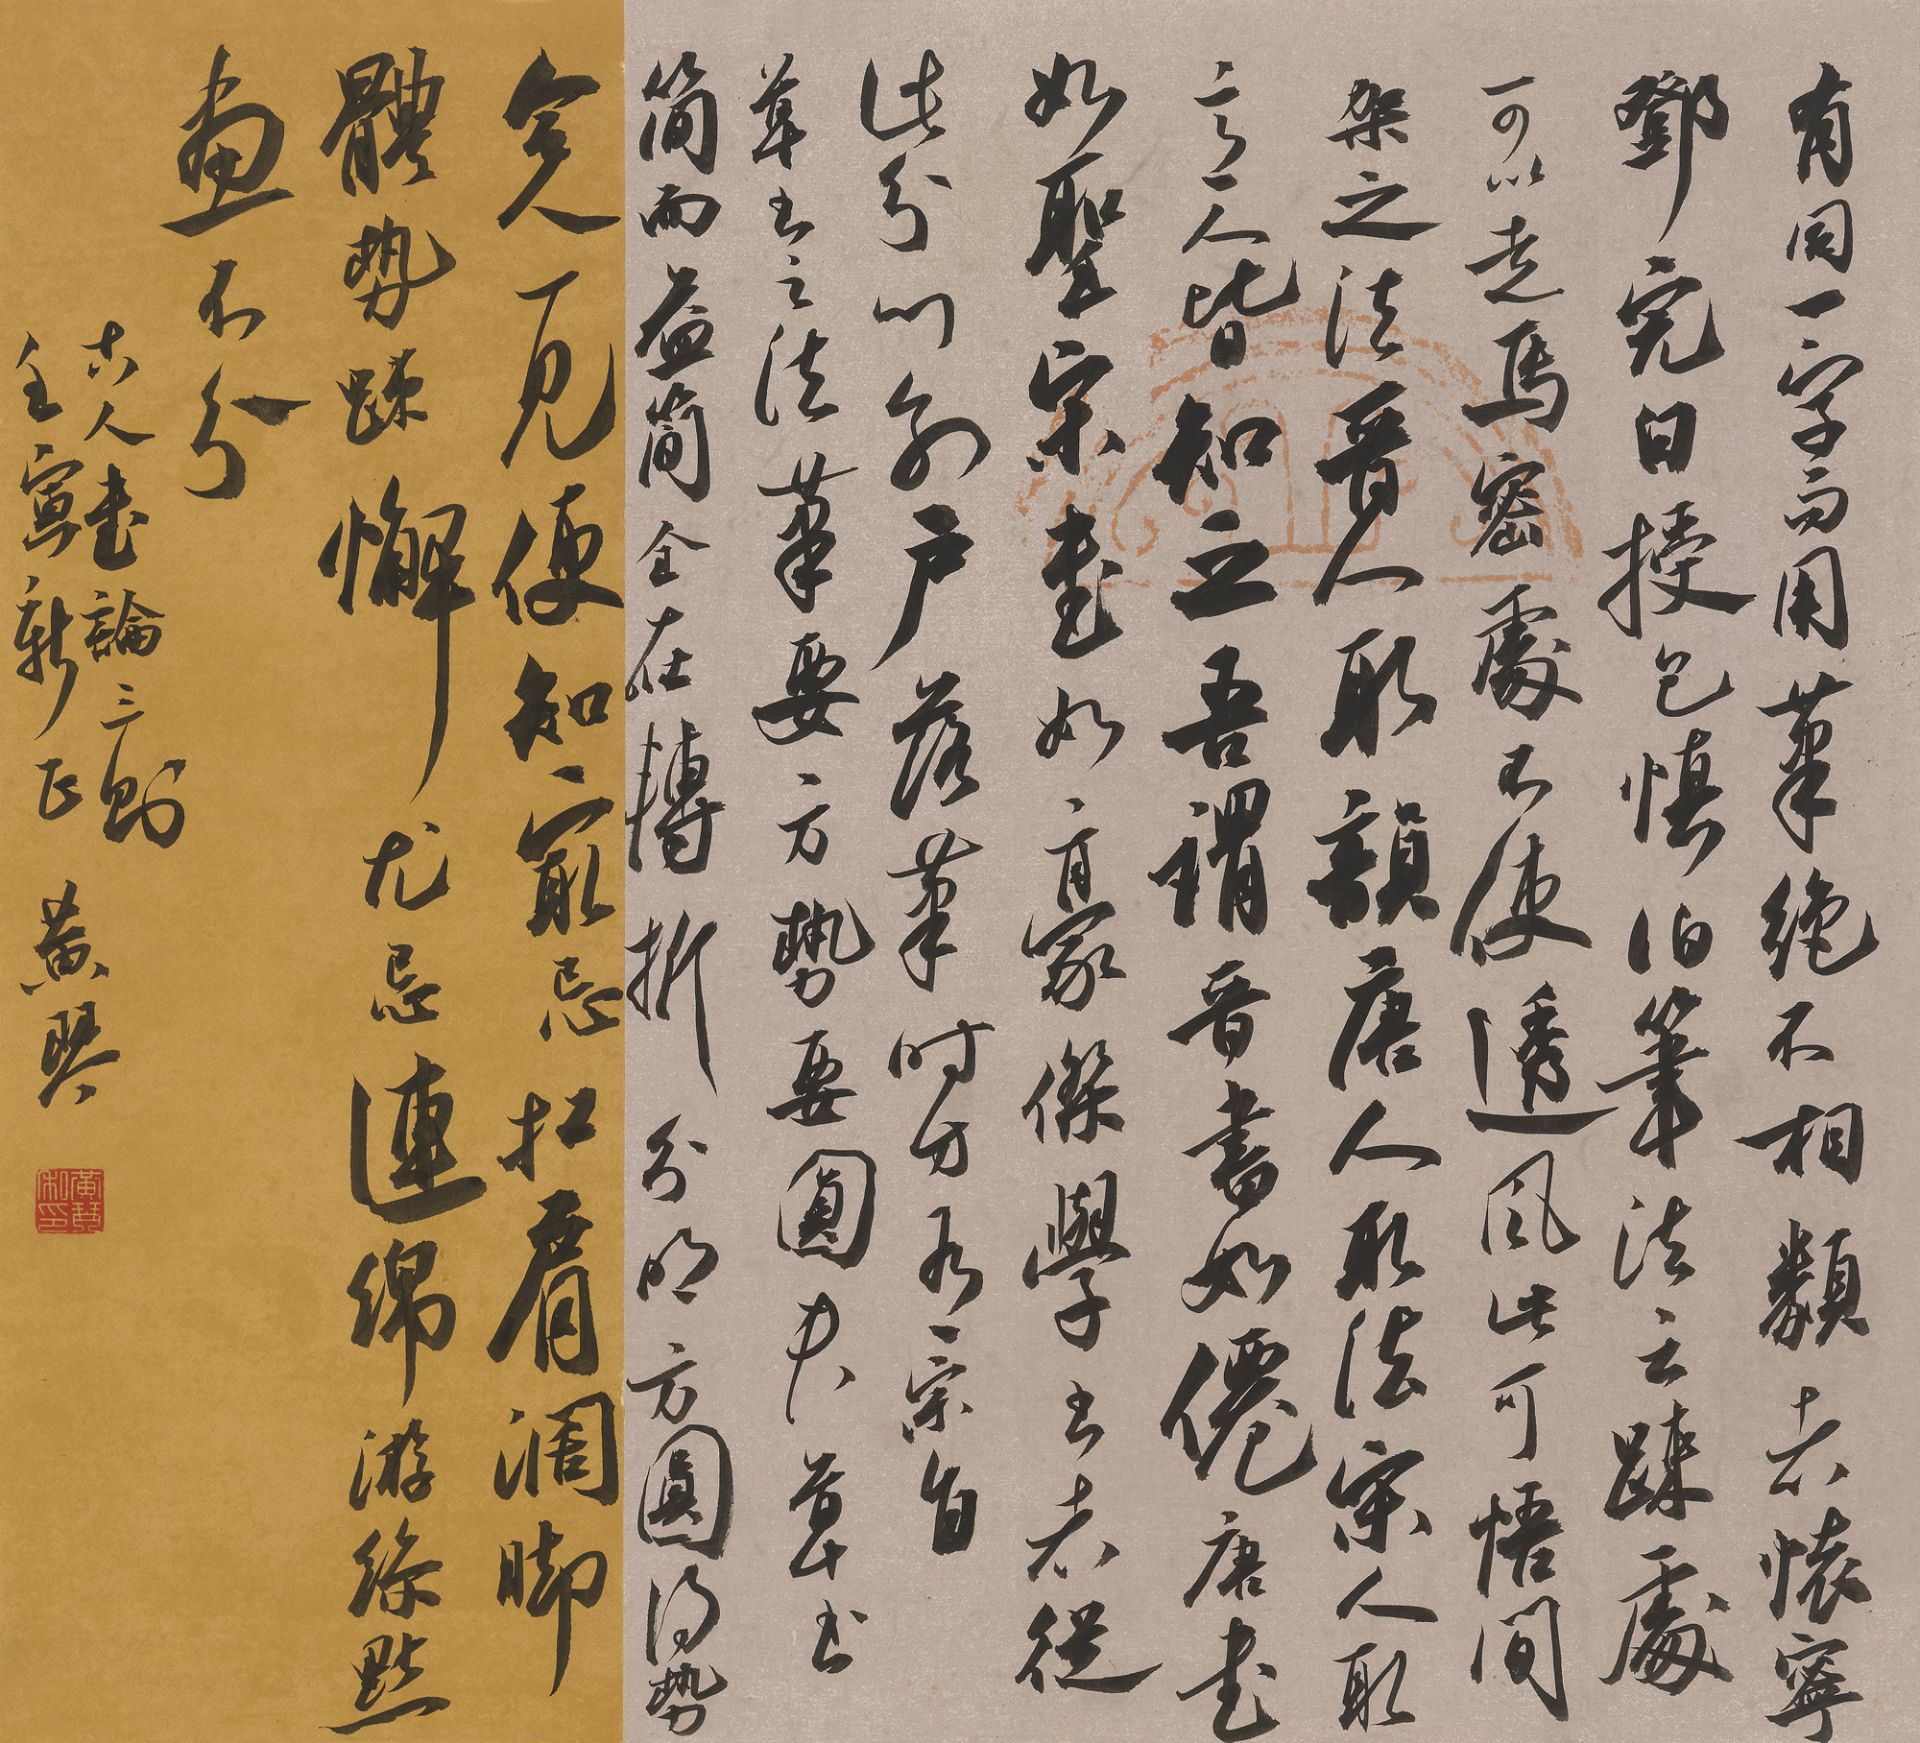 有同一字而用筆绝不相類者懷寧
鄧完白授包慎伯筆法云疎處
可以走馬密處不使透風此可悟間
架之法晉人取韻唐人取法宋人取
意人皆知之吾謂晉書如僊唐書
如聖宋書如豪傑學書者從
此分門别户落筆時方有宗旨
草書之法筆要方勢要圓夫草書
簡而益簡全在轉折分明方圓得勢
令人一見便知最忌扛肩濶脚
體勢疎懈尤忌連綿游絲點
畫不分
古人書論三則
壬寅新正 黄琴
黃琴私印